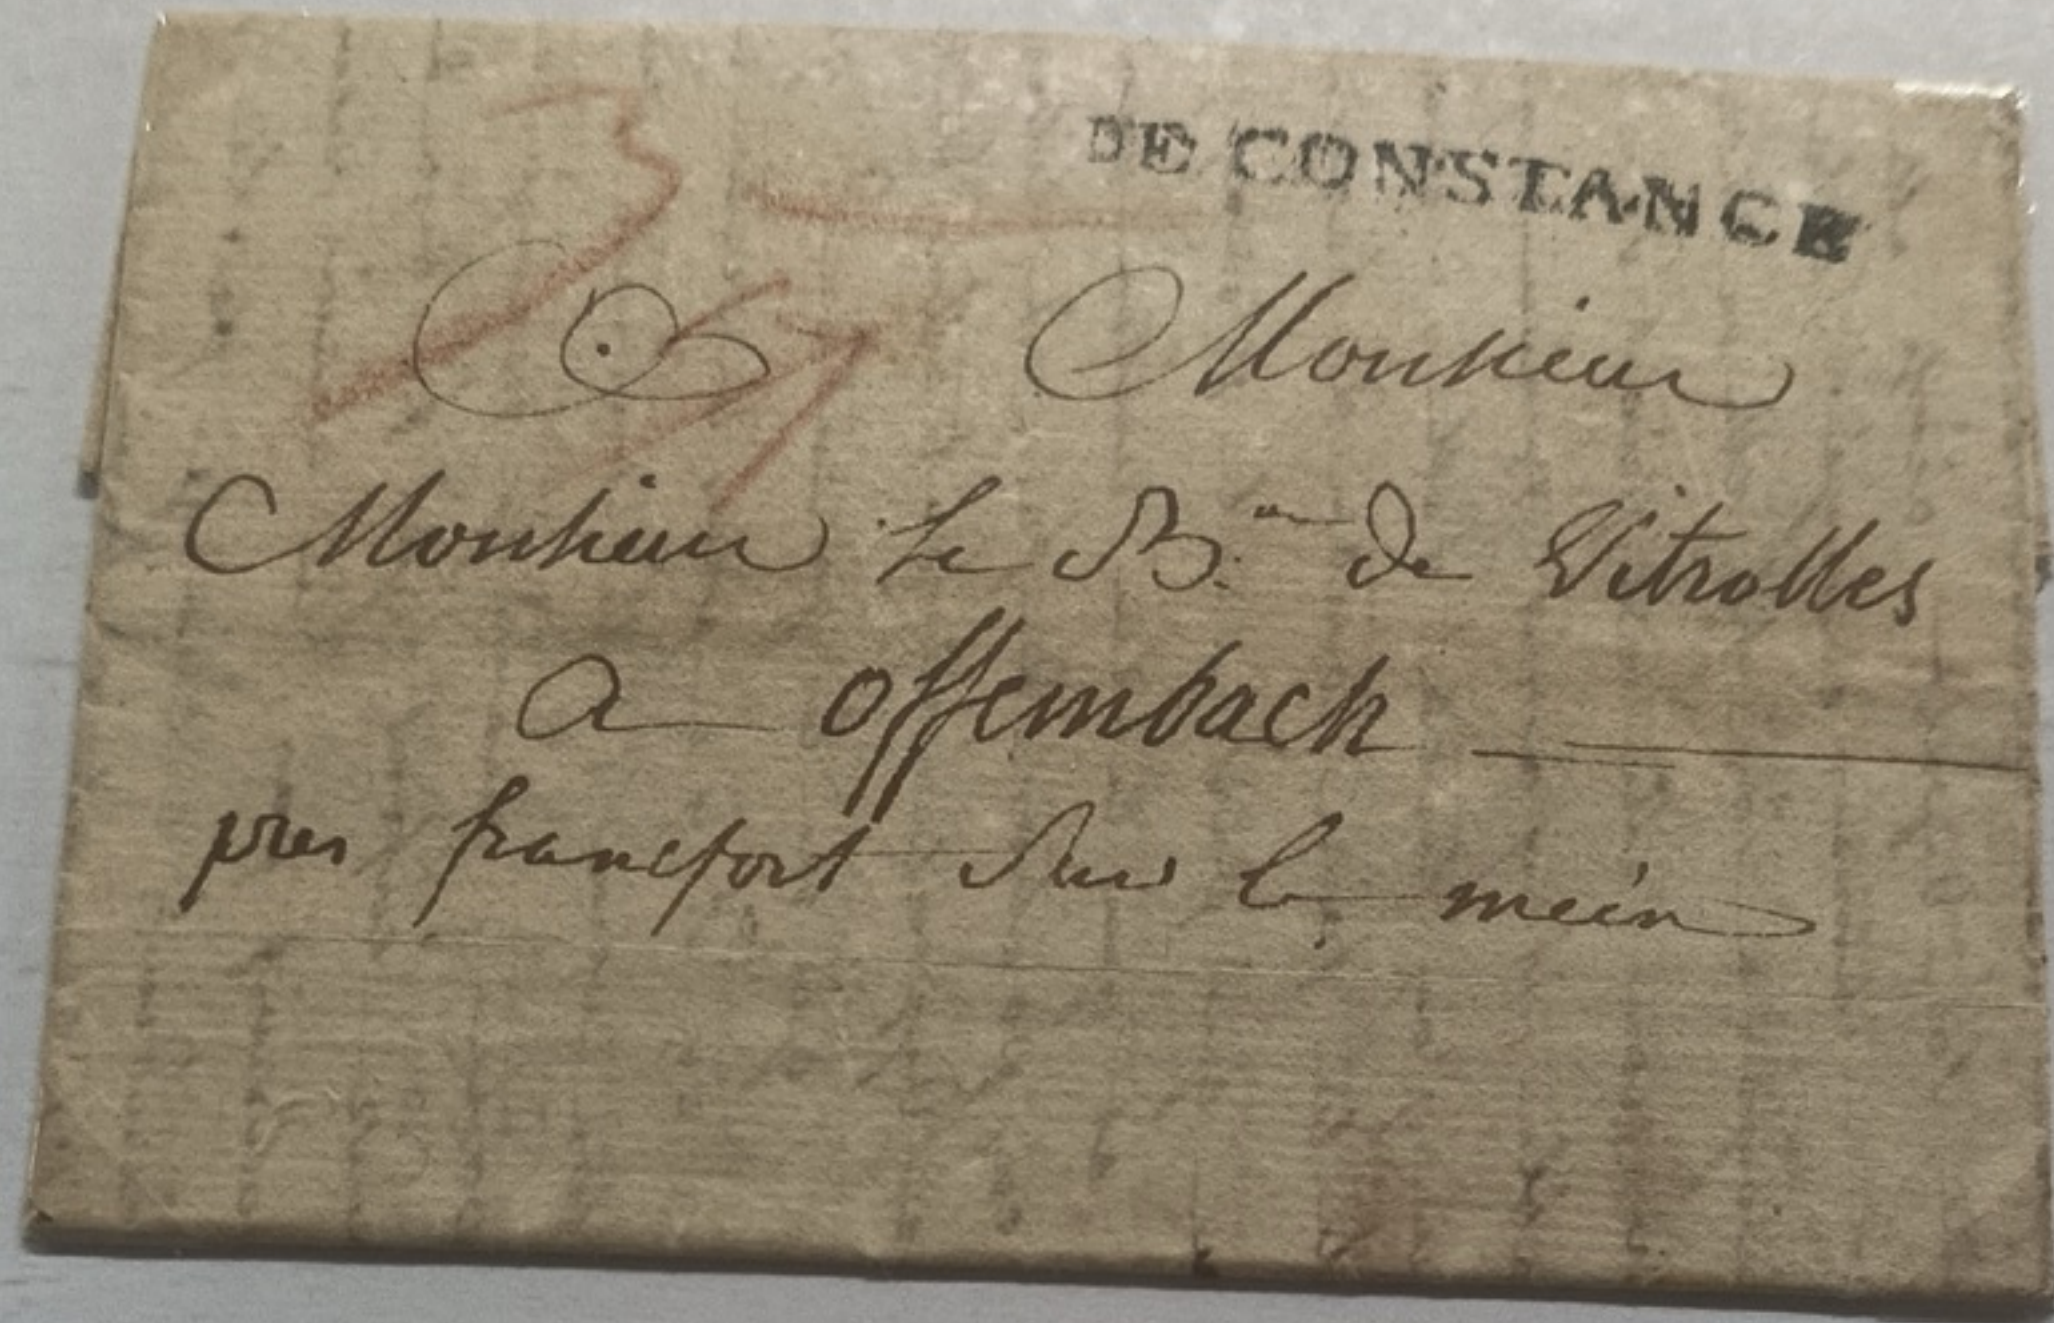 DE CONSTANCE
Monsieur
Monsieur le B.on de Vitrolles
a offembach
pres francfort sur le mein